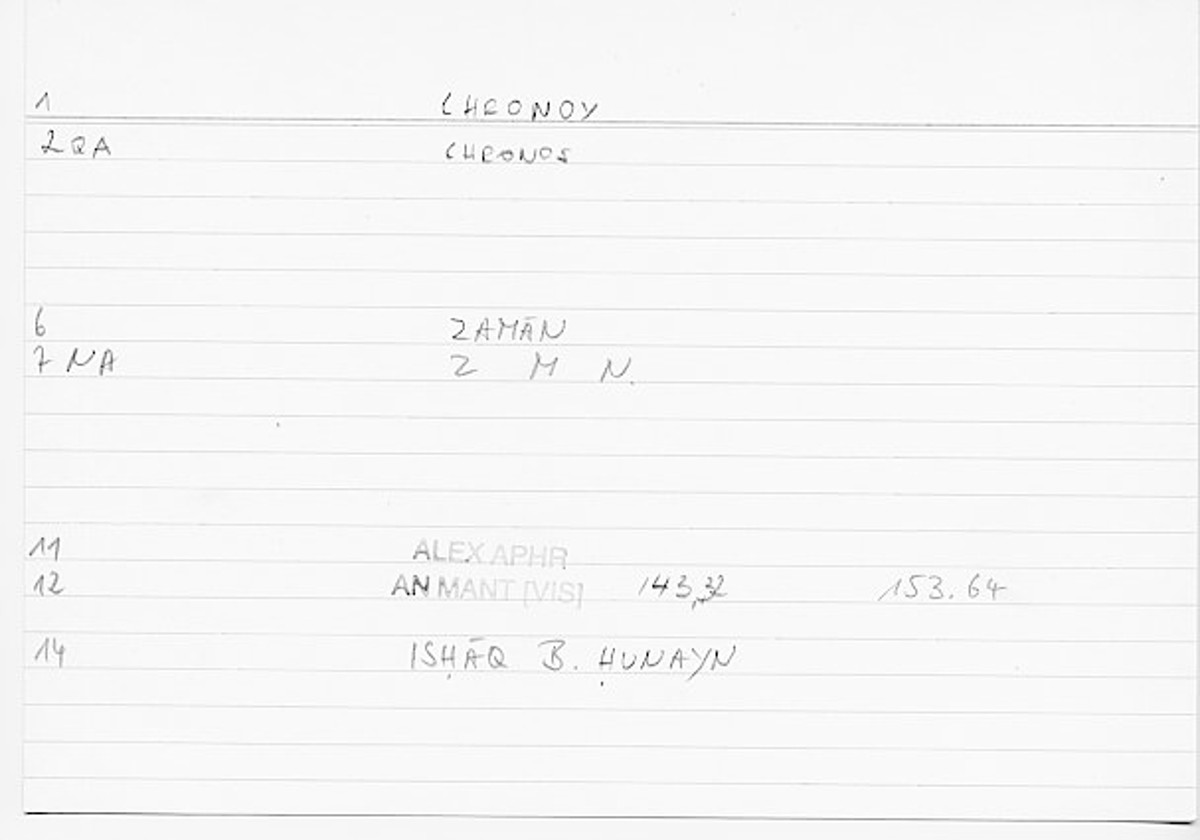 1 CHRONOY
2QA CHRONOS
6 ZAMĀN
7 NA Z M N.
11 ALEX APHR
12 AN MANT [VIS] 143,32 153.64
14 ISḤĀQ B. ḤUNAYN